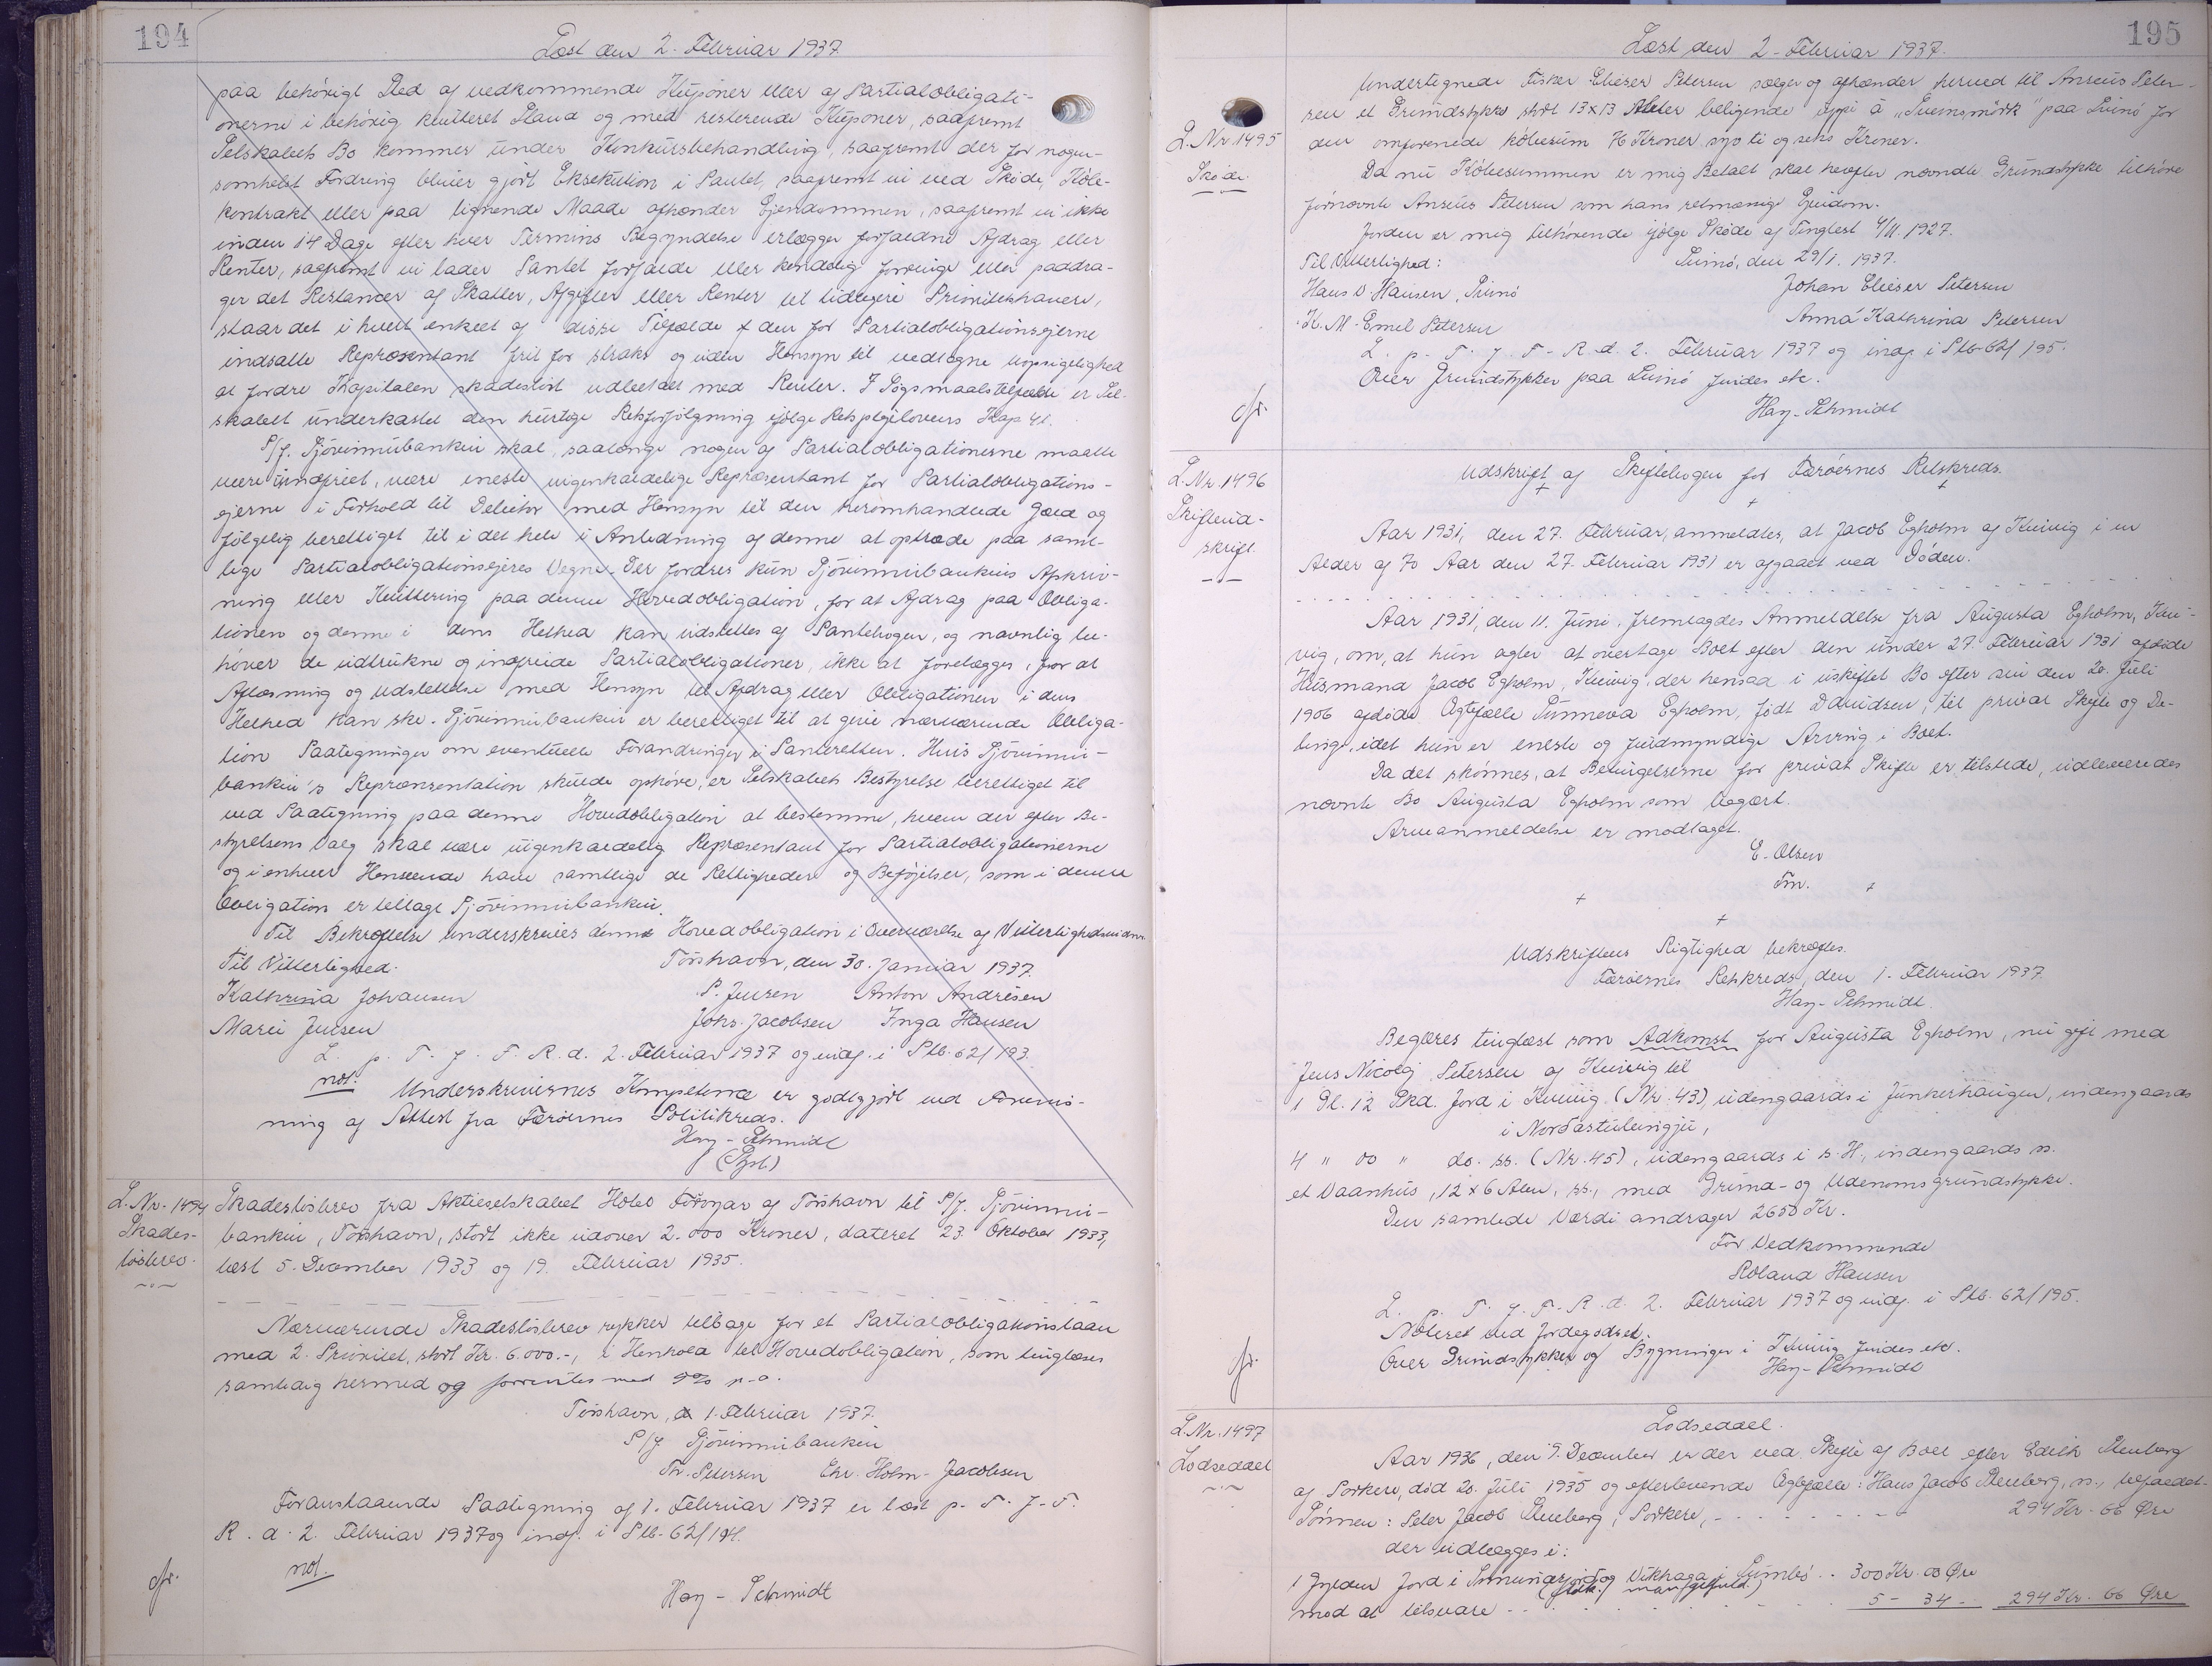 194
Læst den 2. Februar 1937.
paa behørigt Sted af vedkommende Kuponer eller af Partialobligati-
onerne i behørig kvitteret Stand og med resterende Kuponer, saafremt
Selskabets Bo kommer under Konkursbehandling, saafremt der for nogen-
somhelst Fordring bliver gjort Eksekution i Pantet, saafremt vi ved Skøde, Købe-
kontrakt eller paa lignende Maade afhænder Ejendommen, saafremt vi ikke
inden 14 Dage efter hver Termins Begyndelse erlægger forfaldne Afdrag eller
Renter, saafremt vi lader Pantet forfalde eller kendelig forringe eller paadra-
ger det Restancer af Skatter, Afgifter eller Renter til tidligere Prioritetshavere,
staar det i hvert enkelt af disse Tilfælde f den for Partialobligationsejerne
indsatte Repræsentant frit for straks og uden Hensyn til vedtagne Uopsigelighed
at fordre Kapitalen skadesløst udbetalt med Renter. I Søgsmaalstilfælde er Sel-
skabet underkastet den hurtige Retsforfølgning ifølge Retsplejelovens Kap 41.
P/f. Sjóvinnubankin skal, saalænge nogen af Partialobligationerne maatte
være uindfriet, være eneste uigenkaldelige Repræsentant for Partialobligations-
ejerne i Forhold til Debitor med Hensyn til den heromhandlede Gæld og
følgelig berettiget til i det hele i Anledning af denne at optræde paa samt-
lige Partialobligationsejeres Vegne. Der fordres kun Sjóvinnubankins Afskriv-
ning eller Kvittering paa denne Hovedobligation, for at Afdrag paa Obliga-
tionen og denne i dens Helhed kan udslettes af Pantebogen, og navnlig be-
høver de udtrukne og indfriede Partialobligationer, ikke at forelægges, for at
Aflæsning og Udslettelse med Hensyn til Afdrag eller Obligationen i dens
Helhed kan ske. Sjóvinnubankin er berettiget til at give nærværende Obliga-
tion Paategninger om eventuelle Forandringer i Panteretten. Hvis Sjóvinnu-
bankin's Repræsentation skulde ophøre, er Selskabets Bestyrelse berettiget til
ved Paategning paa denne Hovedobligation at bestemme, hvem der efter Be-
styrelsens Valg skal være uigenkaldelig Repræsentant for Partialobligationerne
og i enhver Henseende have samtlige de Rettigheder og Beføjelser, som i denne
Obligation er tillagt Sjóvinnubankin.
Til Bekræftelse underskrives denne Hovedobligation i Overværelse af Vitterlighedsvidner.
Til Vitterlighed. Tórshavn, den 30. Januar 1937.
Kathrina Johansen P. Jensen Anton Andrésen
Marie Jensen Johs. Jacobsen Inga Hansen
L. p. T. f. F. R. d. 2. Februar 1937 og indf. i Ptb. 62/193.
not. Underskrivernes Kompetence er godtgjort ved Forevis-
ning af Attest fra Færøernes Politikreds.
Hay-Schmidt
L. Nr. 1494 Skadesløsbrev fra Aktieselskabet Hotel Føroyar af Tórshavn til P/f. Sjóvinnu-
Skades- bankin, Tórshavn, stort ikke udover 2.000 Kroner, dateret 23. Oktober 1933,
løsbrev. læst 5. December 1933 og 19. Februar 1935.
Nærværende Skadesløsbrev rykker tilbage for et Partialobligationslaan
med 2. Prioritet, stort Kr. 6.000.-, i Henhold til Hovedobligation, som tinglæses
samtidig hermed og forrentes med 5% p.a.
Tórshavn, d. 1. Februar 1937.
P/f Sjóvinnubankin
Th. Petersen Chr. Holm-Jacobsen
Foranstaaende Paategning af 1. Februar 1937 er læst p. T. f. F.
R. d. 2. Februar 1937 og indf. i Ptb. 62/194.
not.
Hay-Schmidt
195
Læst den 2. Februar 1937.
Undertegnede Fisker Elieser Petersen sælger og afhænder herved til Anseus Peter-
L. Nr. 1495 sen et Grundstykke stort 13x13 Alen beligende uppi á "Suinsmørk" paa Svinó for
den omforenede købesum 76 Kroner syv ti og seks Kroner.
Skøde. Da nu Købesummen er mig Betalt skal herefter nævnte Grundstykke tilhøre
førnævnte Anseus Petersen som hans retmæsige Ejendom.
Jorden er mig tilhørende ifølge Skøde af Tinglest 4/11. 1927.
Til Vitterlighed: Svinó, den 29/1. 1937.
Hans D. Hansen, Svinó Johan Elieser Petersen
K. M. Emil Petersen Anna Kathrina Petersen
L. p. T. f. F. R. d. 2. Februar 1937 og indf. i Ptb. 62/195.
Over Grundstykker paa Svinó findes etc.
Hay-Schmidt
L. Nr. 1496 Udskrift af Skiftebogen for Færøernes Retskreds.
Skifteud-
skrift.
Aar 1931, den 27. Februar, anmeldtes, at Jacob Egholm af Kvívig i en
Alder af 70 Aar den 27. Februar 1931 er afgaaet ved Døden.
Aar 1931, den 11. Juni, fremlagdes Anmeldelse fra Augusta Egholm, Kví-
vig, om, at hun agter at overtage Boet efter den under 27. Februar 1931 afdøde
Husmand Jacob Egholm, Kvívig, der hensad i uskiftet Bo efter sin den 20. Juli
1906 afdøde Ægtefælle Sunneva Egholm, født Davidsen, til privat Skifte og De-
ling, idet hun er eneste og fuldmyndige Arving i Boet.
Da det skønnes, at Betingelserne for privat Skifte er tilstede, udleveredes
nævnte Bo Augusta Egholm som begært.
Arveanmeldelse er modtaget.
E. Olsen
Fm.
Udskriftens Rigtighed bekræftes.
Færøernes Retskreds, den 1. Februar 1937.
Hay-Schmidt.
Begæres tinglæst som Adkomst for Augusta Egholm, nu gift med
Jens Nicolaj Petersen af Kvívig til
1 Gl. 12 Skd. Jord i Kvívig. (Nr. 43), udengaards i Junkerhaugen, indengaards
i Norðastulungju,
4 " 00 " do. ss. (Nr. 45), udengaards i s. H., indengaards ss.
et Vaanhus, 12 x 6 Alen, ss., med Grund- og Udenomsgrundstykke.
Den samlede Værdi andrager 2650 Kr.
For Vedkommende
Roland Hansen
L. p. T. f. F. R. d. 2. Februar 1937 og indf. i Ptb. 62/195.
Noteret ved Jordegodset.
Over Grundstykker og Bygninger i Kvívig findes etc.
Hay-Schmidt
L. Nr. 1497 Lodseddel.
Lodseddel Aar 1936, den 9. December er der ved Skifte af Boet efter Edith Stenberg
af Porkere, død 20. Juli 1935 og efterlevende Ægtefælle: Hans Jacob Stenberg, ss., tilfaldet
Sønnen: Peter Jacob Stenberg, Porkere, 294 Kr. 66 Øre
der udlægges i:
1 Gylden Jord i og Vikhaga i Sumbø.. 300 Kr. 00 Øre
mod at tilsvare 5 - 34 - 294 Kr. 66 Øre